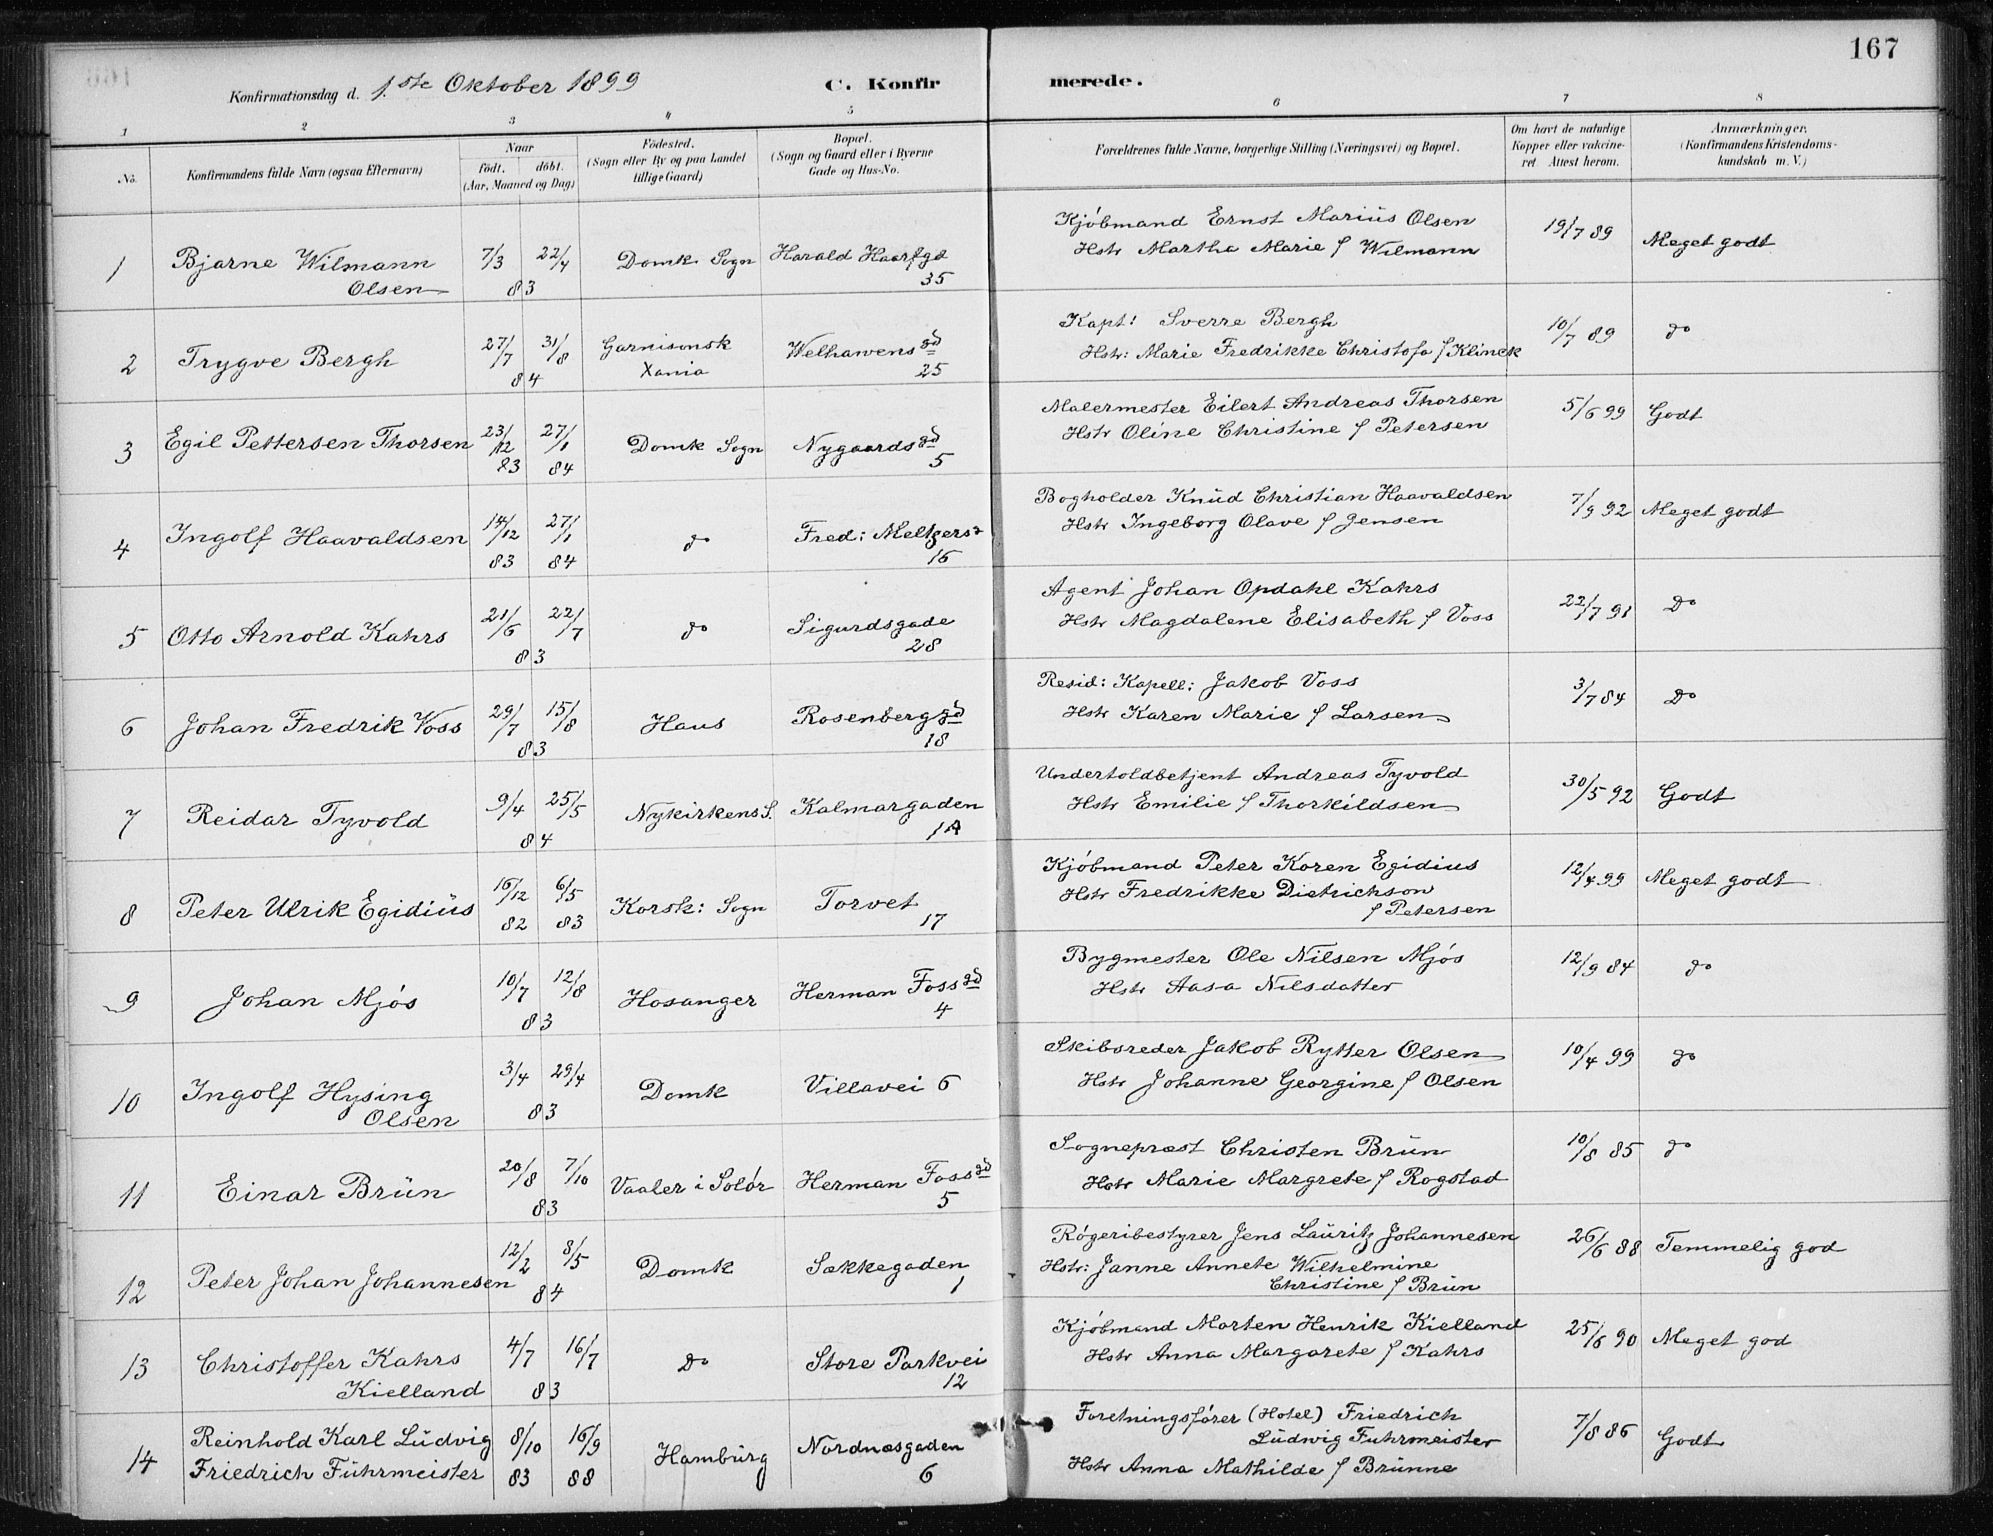 167
Konfirmationsdag d. 1.ste Oktober 1899 C. Konfirmerede.
1 2 3 4 5 6 7 8
No. Konfirmandens fulde Navn (ogsaa Efternavn) Naar födt. döbt. (Aar, Maaned og Dag) Födested. (Sogn eller By og paa Landet tillige Gaard) Bopæl. (Sogn og Gaard eller i Byerne Gade og Hus-No. Forældrenes fulde Navne, borgerlige Stilling (Næringsvei) og Bopæl. Om havt de naturlige Kopper eller vakcineret. Attest herom. Anmærkninger. (Konfirmandens Kristendomskundskab m. V.)
Kjöbmand Ernst Marius Olsen
1 Bjarne Wilmann 7/3 22/4 Domk. Sogn Harald Haarfgd Hstr Martha Marie f Wilmann 19/7 89 Meget godt
Olsen 83 35
Kapt: Sverre Bergh
2 Trygve Bergh 27/7 31/8 Garnisonsk Welhavens gd Hstr: Marie Fredrikke Christofa f Klinck 10/7 89 do
84 Xania 25
Malermester Eilert Andreas Thorsen
3 Egil Pettersen Thorsen 23/12 27/1 Domk Sogn Nygaards gd Hstr Oline Christine f Petersen 5/6 99 Godt
83 84 5
Bogholder Knud Christian Haavaldsen
4 Ingolf Haavaldsen 14/12 27/1 do Fred: Meltzers Hstr Ingeborg Olave f Jensen 7/9 92 Meget godt
83 84 16
Agent Johan Opdahl Kahrs
5 Otto Arnold Kahrs 21/6 22/7 do Sigurdsgade Hstr Magdalene Elisabeth f Voss 22/7 91 Do
83 28
Resid: Kapell: Jakob Voss
6 Johan Fredrik Voss 29/7 15/8 Haus Rosenberggd Hstr Karen Marie f Larsen 3/7 84 Do
83 18
Undertoldbetjent Andreas Tyvold
7 Reidar Tyvold 9/4 25/5 Nykirkens S. Kalmargaden Hstr Emilie f Thorkildsen 30/5 92 Godt
84 1A
Kjöbmand Peter Koren Egidius
8 Peter Ulrik Egidius 16/12 6/5 Korsk: Sogn Torvet Hstr Fredrikke Dietrichson 12/4 99 Meget godt
82 83 17 f Petersen
Bygmester Ole Nilsen Mjös
9 Johan Mjös 10/7 12/8 Hosanger Herman Foss gd Hstr Aasa Nilsdatter 12/9 84 do
83 4
Skibsreder Jakob Rytter Olsen
10 Ingolf Hysing 3/4 29/4 Domk Villavei 6 Hstr Johanne Georgine f Olsen 10/4 99 do
Olsen 83
Sognepræst Christen Brün
11 Einar Brün 20/8 7/10 Vaaler i Solör Herman Foss gd Hstr Marie Margrete f Rogstad 10/8 85 do
83 5
Rögeribestyrer Jens Lauritz Johannesen
12 Peter Johan Johannesen 12/2 8/5 Domk Sækkegaden Hstr: Janne Annete Wilhelmine 26/6 88 Temmelig god
84 1 Christine f Brün
Kjöbmand Morten Henrik Kielland
13 Christoffer Kahrs 4/7 16/7 do Store Parkvei Hstr Anna Margarete f Kahrs 25/6 90 Meget god
Kielland 83 12
Foretningsförer (Hotel) Friedrich
14 Reinhold Karl Ludvig 8/10 16/9 Hamburg Nordnæsgaden Ludwig Fuhrmeister 7/8 86 Godt
Friedrich Fuhrmeister 83 88 6 Hstr Anna Mathilde f Brünne